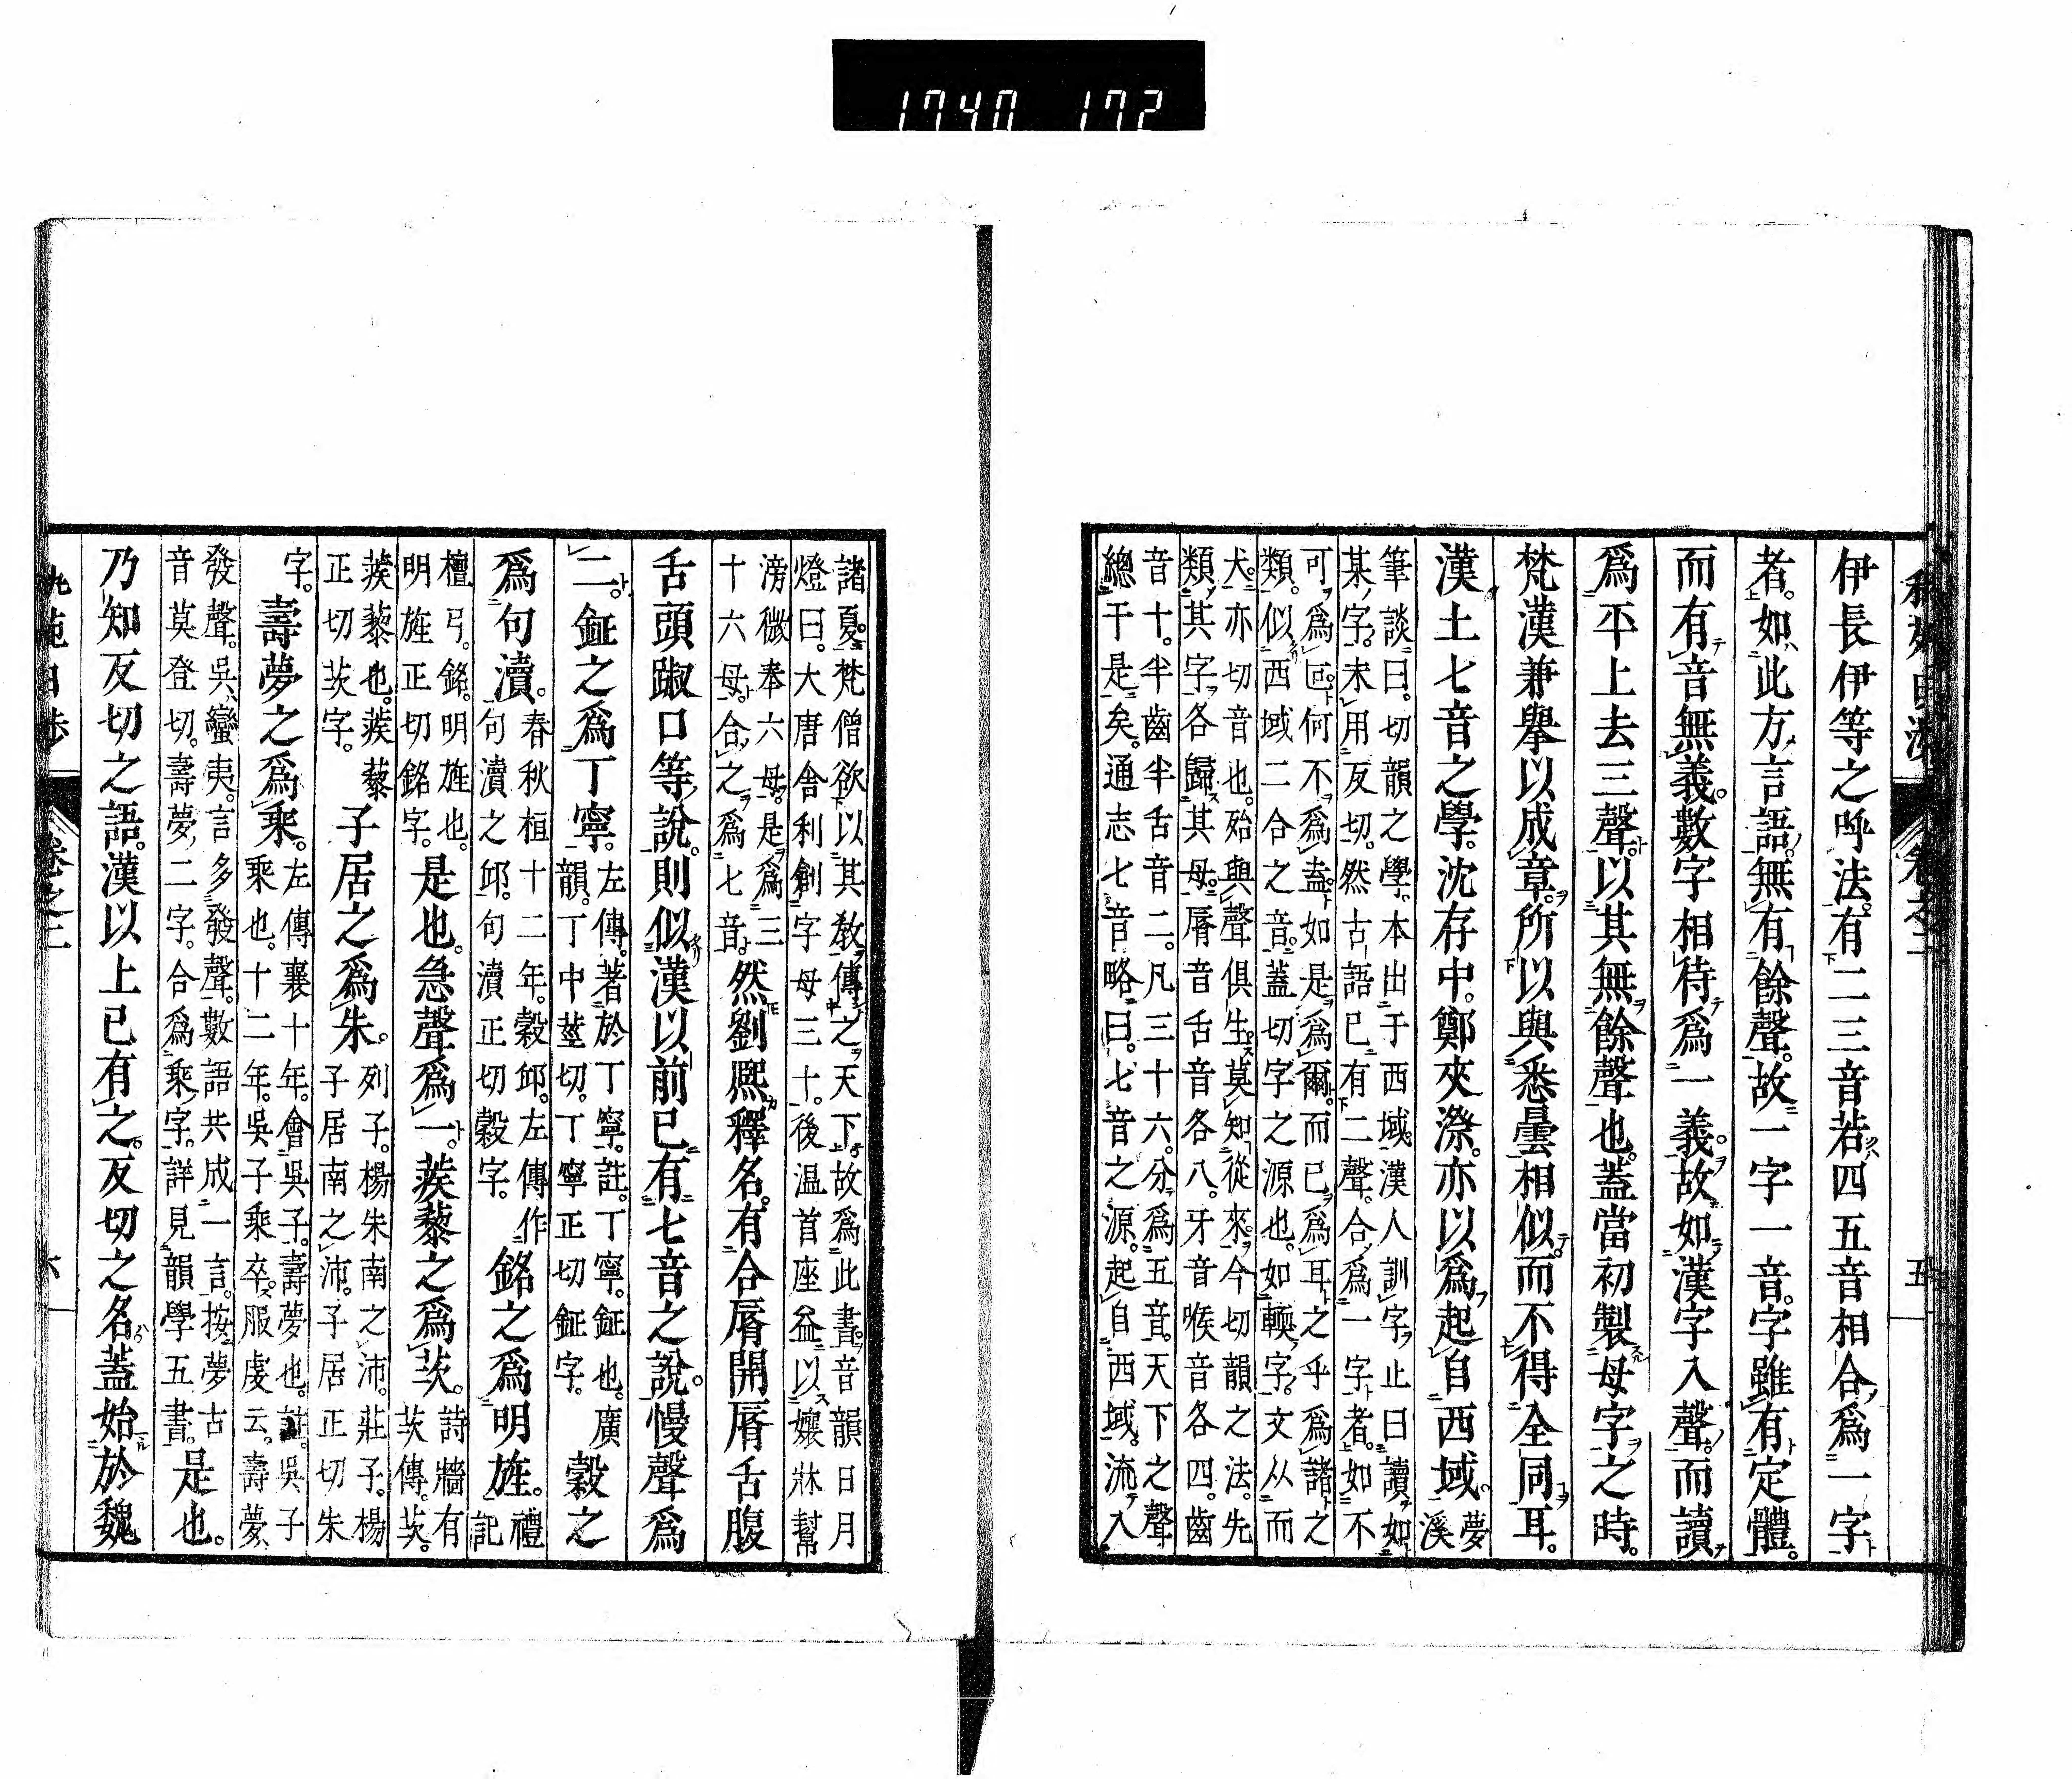 1740 172
伊長伊等之呼法。有二三音若四五音相合。爲一字
者。如此方言語。無有餘聲。故一字一音。字雖有定體。
而有音無義。數字相待爲一義。故如漢字入聲。而讀
爲平上去三聲。以其無餘聲也。蓋當初製母字之時。
梵漢兼擧以成章。所以與悉曇相似。而不得全同耳。
漢土七音之學。沈存中。鄭夾漈。亦以爲起自西域。夢溪
筆談曰。切韻之學。本出于西域。漢人訓字。止曰讀如
某字。未用反切。然古語已有二聲。合爲一字者。如不
可爲叵。何不爲盍。如是爲爾。而已爲耳。之乎爲諸之
類。似西域二合之音。蓋切字之源也。如輭字。文从而
犬。亦切音也。殆與聲俱生。莫知從來。今切韻之法。先
類其字。各歸其母。脣音舌音各八。牙音喉音各四。齒
音十。半齒半舌音二。凡三十六。分爲五音。天下之聲
總于是矣。通志七音略曰。七音之源。起自西域。流入
卷之二
五
諸夏。梵僧欲以其敎傳之天下。故爲此書。音韻日月
燈曰。大唐舍利創字母三十。後温首座益以孃牀幫
滂微奉六母。是爲三
十六母。合之爲七音。然劉熙釋名。有合脣開脣舌腹
舌頭踧口等說。則似漢以前已有七音之說。慢聲爲
二。鉦之爲丁寧。左傳。著於丁寧。註。丁寧。鉦也。廣
韻。丁中莖切。丁寧正切鉦字。穀之
爲句瀆。春秋桓十二年。穀邱。左傳作
句瀆之邱。句瀆正切穀字。銘之爲明旌。禮記
檀弓。銘。明旌也。
明旌正切銘字。是也。急聲爲一。蒺藜之爲茨。詩牆有
茨傳。茨。
蒺藜也。蒺藜
正切茨字。子居之爲朱。列子。楊朱南之沛。莊子。楊
子居南之沛。子居正切朱
字。壽夢之爲乘。左傳襄十年。會吳子壽夢也。註。吳子
乘也。十二年。吳子乘卒。服虔云。壽夢
發聲。吳蠻夷。言多發聲。數語共成一言。按夢古
音莫登切。壽夢二字。合爲乘字。詳見韻學五書。是也。
乃知反切之語。漢以上已有之。反切之名。蓋始於魏
卷之二
六